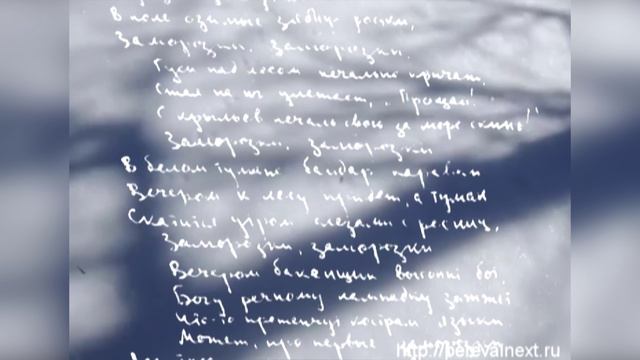 В поле озимые зябнут
Заморозки. Заморозки.
Гуси над лесом печально кричат,
Стая на юг улетает, "Прощай!
С крыльев печаль свою за море скину!"
Заморозки. Заморозки
В белом тулупе
Вечером к лесу прибьет, а туман
Скатится утром слезами с ресниц,
Заморозки, заморозки
Вечером бакенщик
Богу речному лампадку зажжет
Может, про первые
http://perevalnext.ru